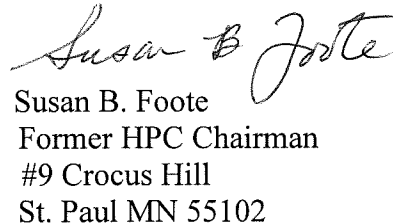 Susan B Foote
Susan B. Foote
Former HPC Chairman
#9 Crocus Hill
St. Paul MN 55102